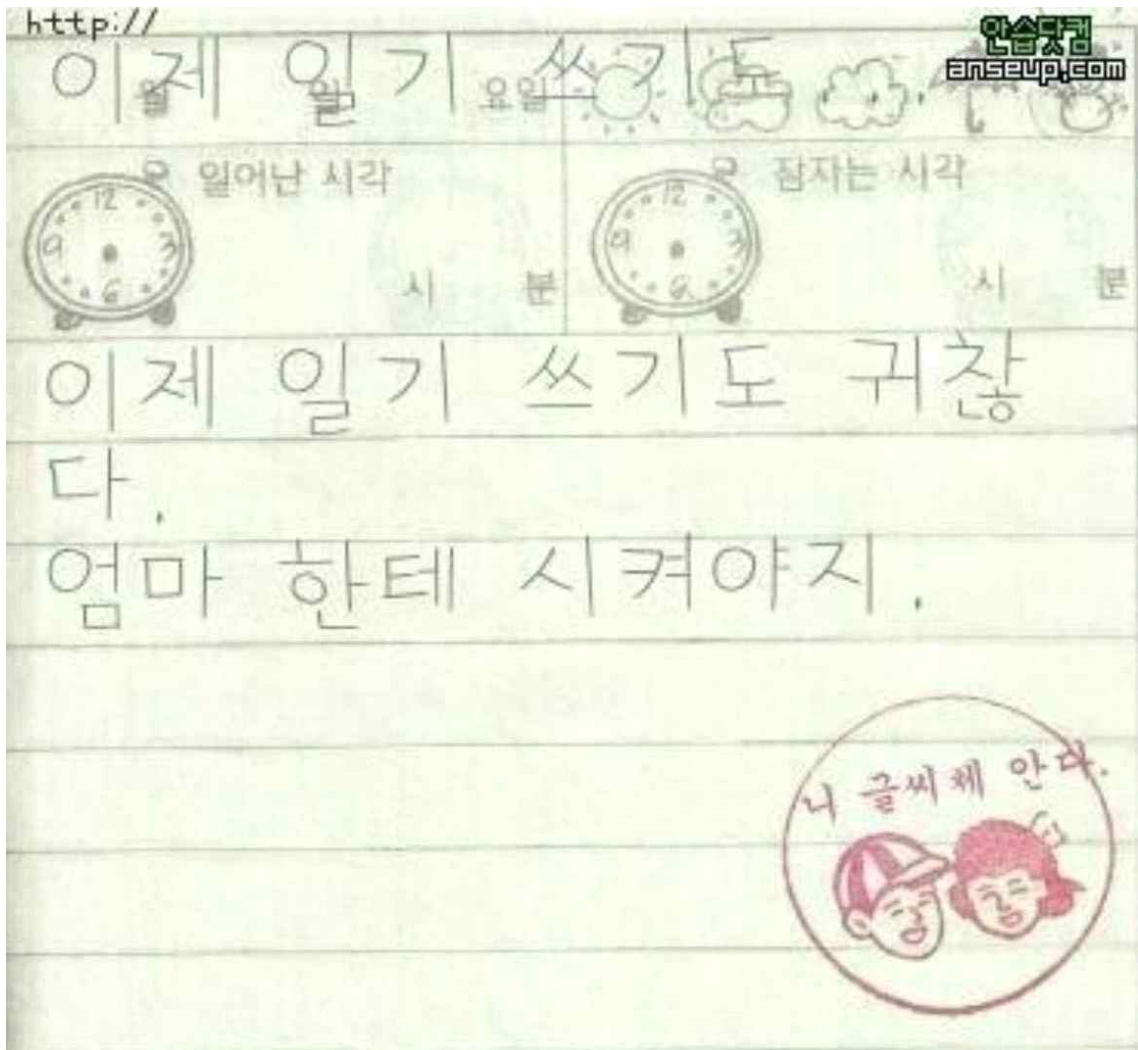 http://
안습닷컴
anseup.com
이제 일기 쓰기도.
월 일 요일
일어난 시각 잠자는 시각
12 3 6 9 12 3 6 9
시 분 시 분
이제 일기 쓰기도 귀찮
다.
엄마 한테 시켜야지.
니 글씨체 안다.